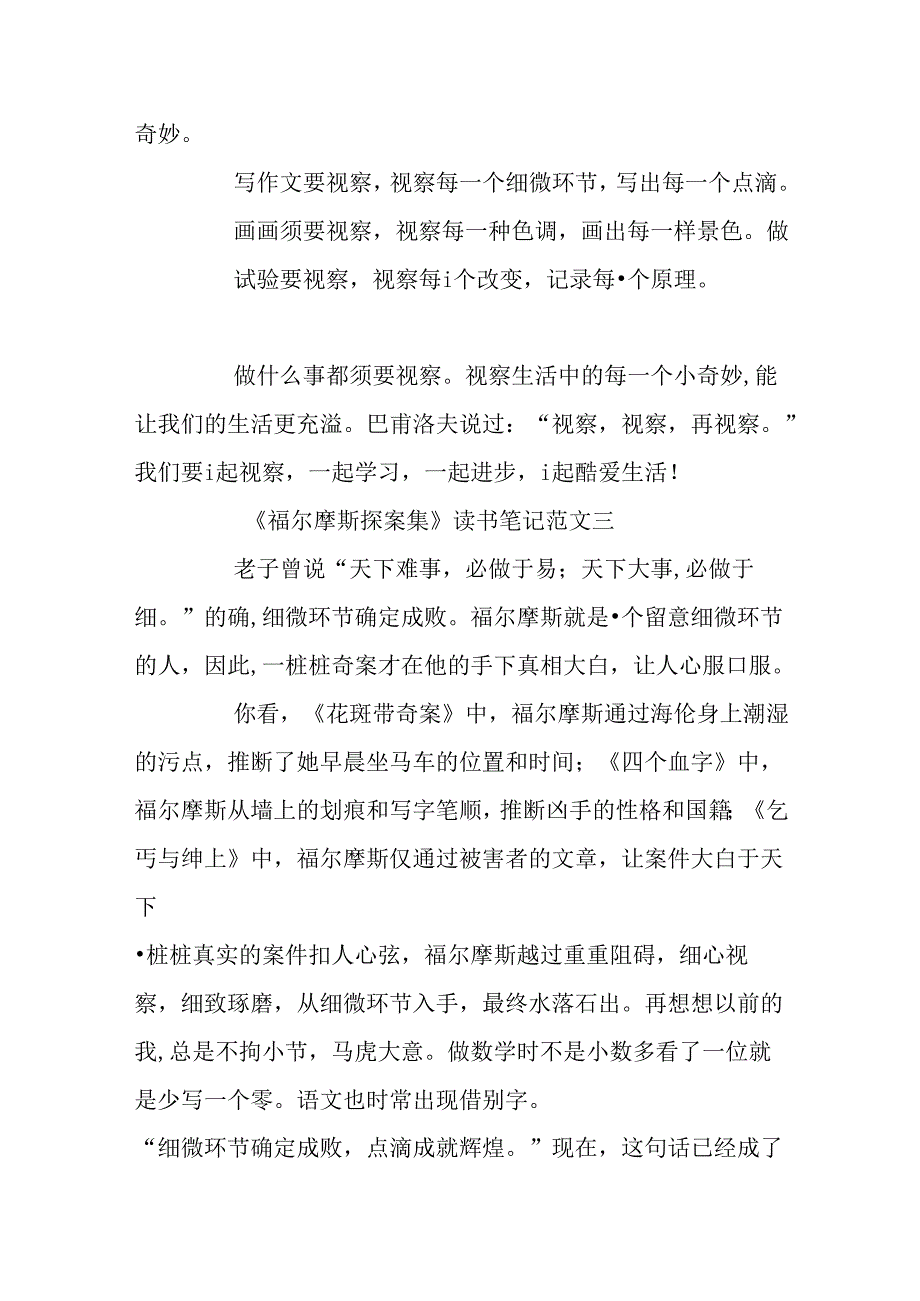 奇妙。
写作文要视察，视察每一个细微环节，写出每一个点滴。
画画须要视察，视察每一种色调，画出每一样景色。做
试验要视察，视察每i个改变，记录每•个原理。
做什么事都须要视察。视察生活中的每一个小奇妙,能
让我们的生活更充溢。巴甫洛夫说过：“视察，视察，再视察。”
我们要i起视察，一起学习，一起进步，i起酷爱生活！
《福尔摩斯探案集》读书笔记范文三
老子曾说“天下难事，必做于易；天下大事,必做于
细。”的确,细微环节确定成败。福尔摩斯就是•个留意细微环节
的人，因此,一桩桩奇案才在他的手下真相大白，让人心服口服。
你看，《花斑带奇案》中，福尔摩斯通过海伦身上潮湿
的污点，推断了她早晨坐马车的位置和时间；《四个血字》中，
福尔摩斯从墙上的划痕和写字笔顺,推断凶手的性格和国籍；《乞
丐与绅上》中，福尔摩斯仅通过被害者的文章，让案件大白于天
下
•桩桩真实的案件扣人心弦，福尔摩斯越过重重阻碍，细心视
察，细致琢磨，从细微环节入手，最终水落石出。再想想以前的
我,总是不拘小节，马虎大意。做数学时不是小数多看了一位就
是少写一个零。语文也时常出现借别字。
“细微环节确定成败，点滴成就辉煌。”现在，这句话已经成了